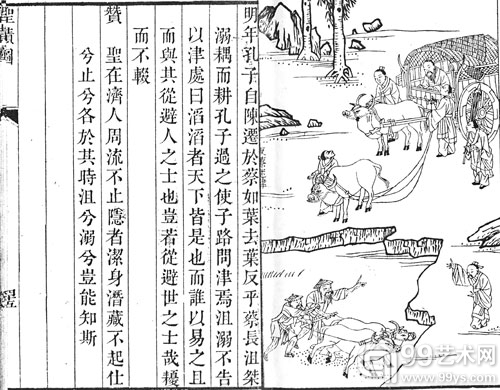 明年孔子自陳遷於蔡如葉去葉反乎蔡長沮桀
溺耦而耕孔子過之使子路問津焉沮溺不告
以津處曰滔滔者天下皆是也而誰以易之且
而與其從避人之士也豈若從避世之士哉耰
而不輟
贊 聖在濟人周流不止隱者潔身潛藏不起仕
兮止兮各於其時沮兮溺兮豈能知斯
聖蹟圖
99艺术网
99ys.com